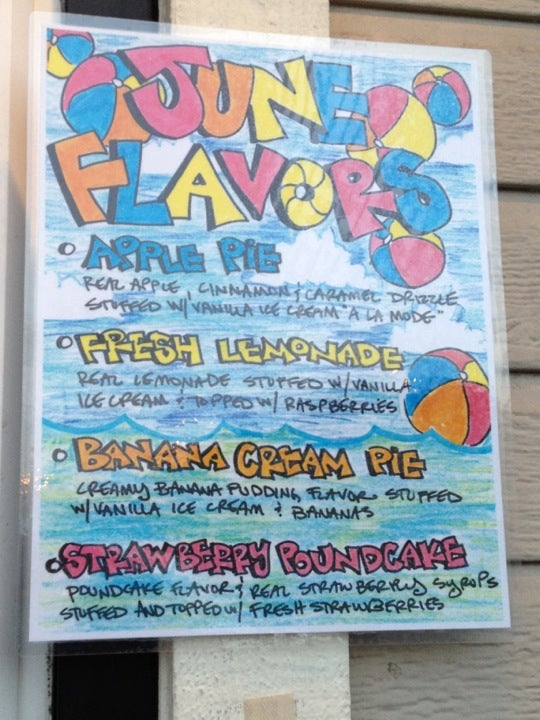 JUNE
FLAVORS
APPLE PIE
REAL APPLE, CINNAMON & CARAMEL DRIZZLE
STUFFED W/ VANILLA ICE CREAM "A LA MODE"
FRESH LEMONADE
REAL LEMONADE STUFFED W/ VANILLA
ICE CREAM & TOPPED W/ RASPBERRIES
BANANA CREAM PIE
CREAMY BANANA PUDDING FLAVOR STUFFED
W/ VANILLA ICE CREAM & BANANAS
STRAWBERRY POUNDCAKE
POUNDCAKE FLAVOR & REAL STRAWBERRY SYROPS
STUFFED AND TOPPED W/ FRESH STRAWBERRIES